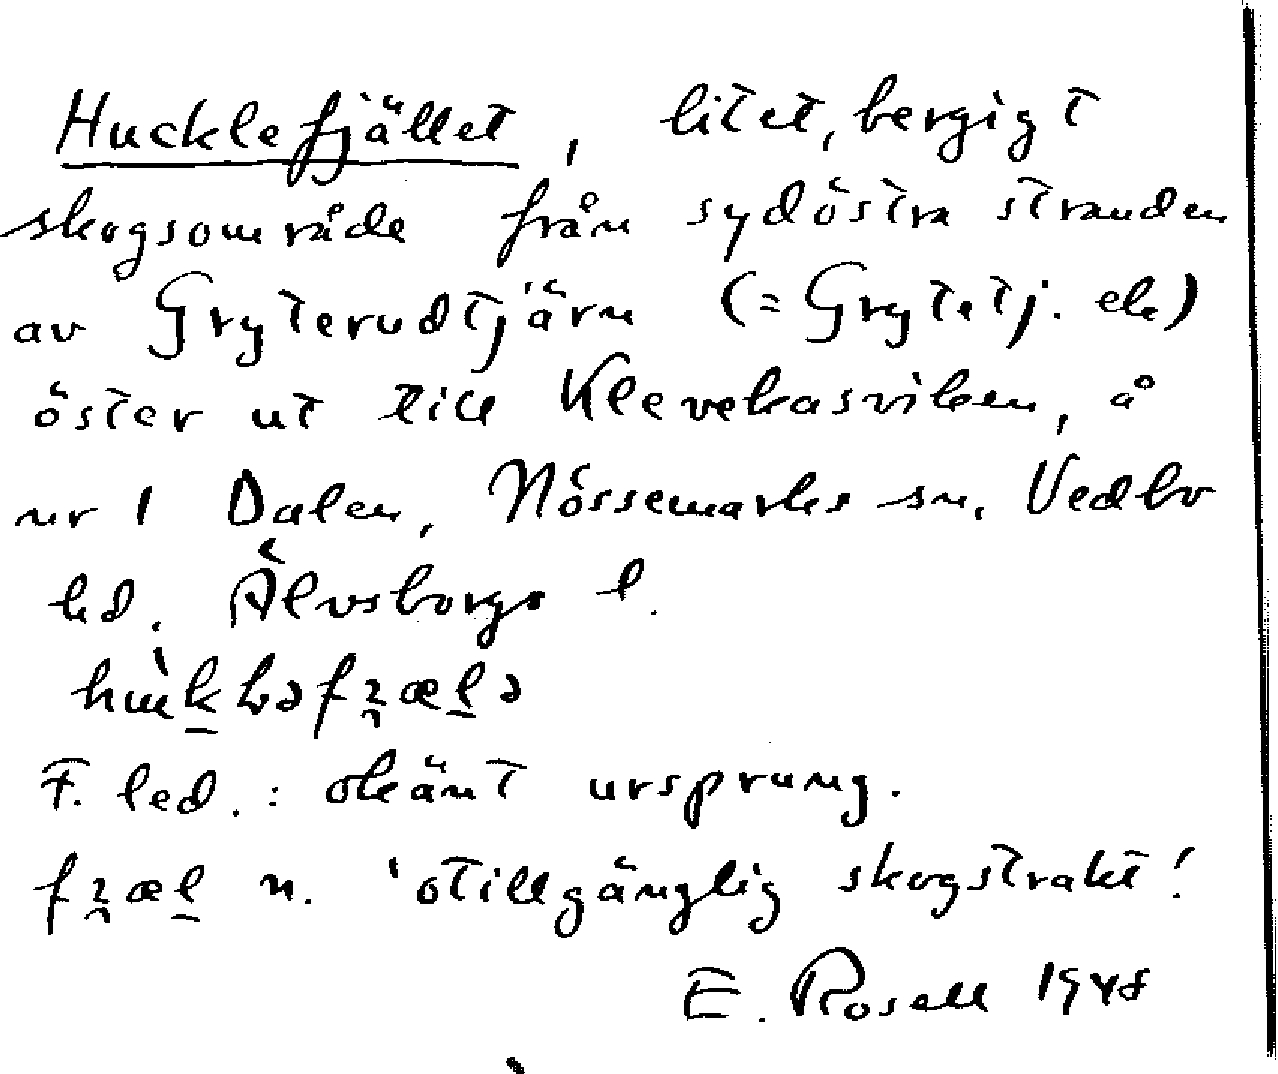 Hucklefjället, litet, bergigt
skogsområde från sydöstra stranden
av Gryterudtjärn (= Grytetj. ek)
öster ut till Klevekasviken, å
nr 1 Dalen, Nössemarks sn, Vedbo
hd. Älvsborgs l.
F. led.: okänt ursprung.
n. 'otillgänglig skogstrakt'.
E. Rosell 1948